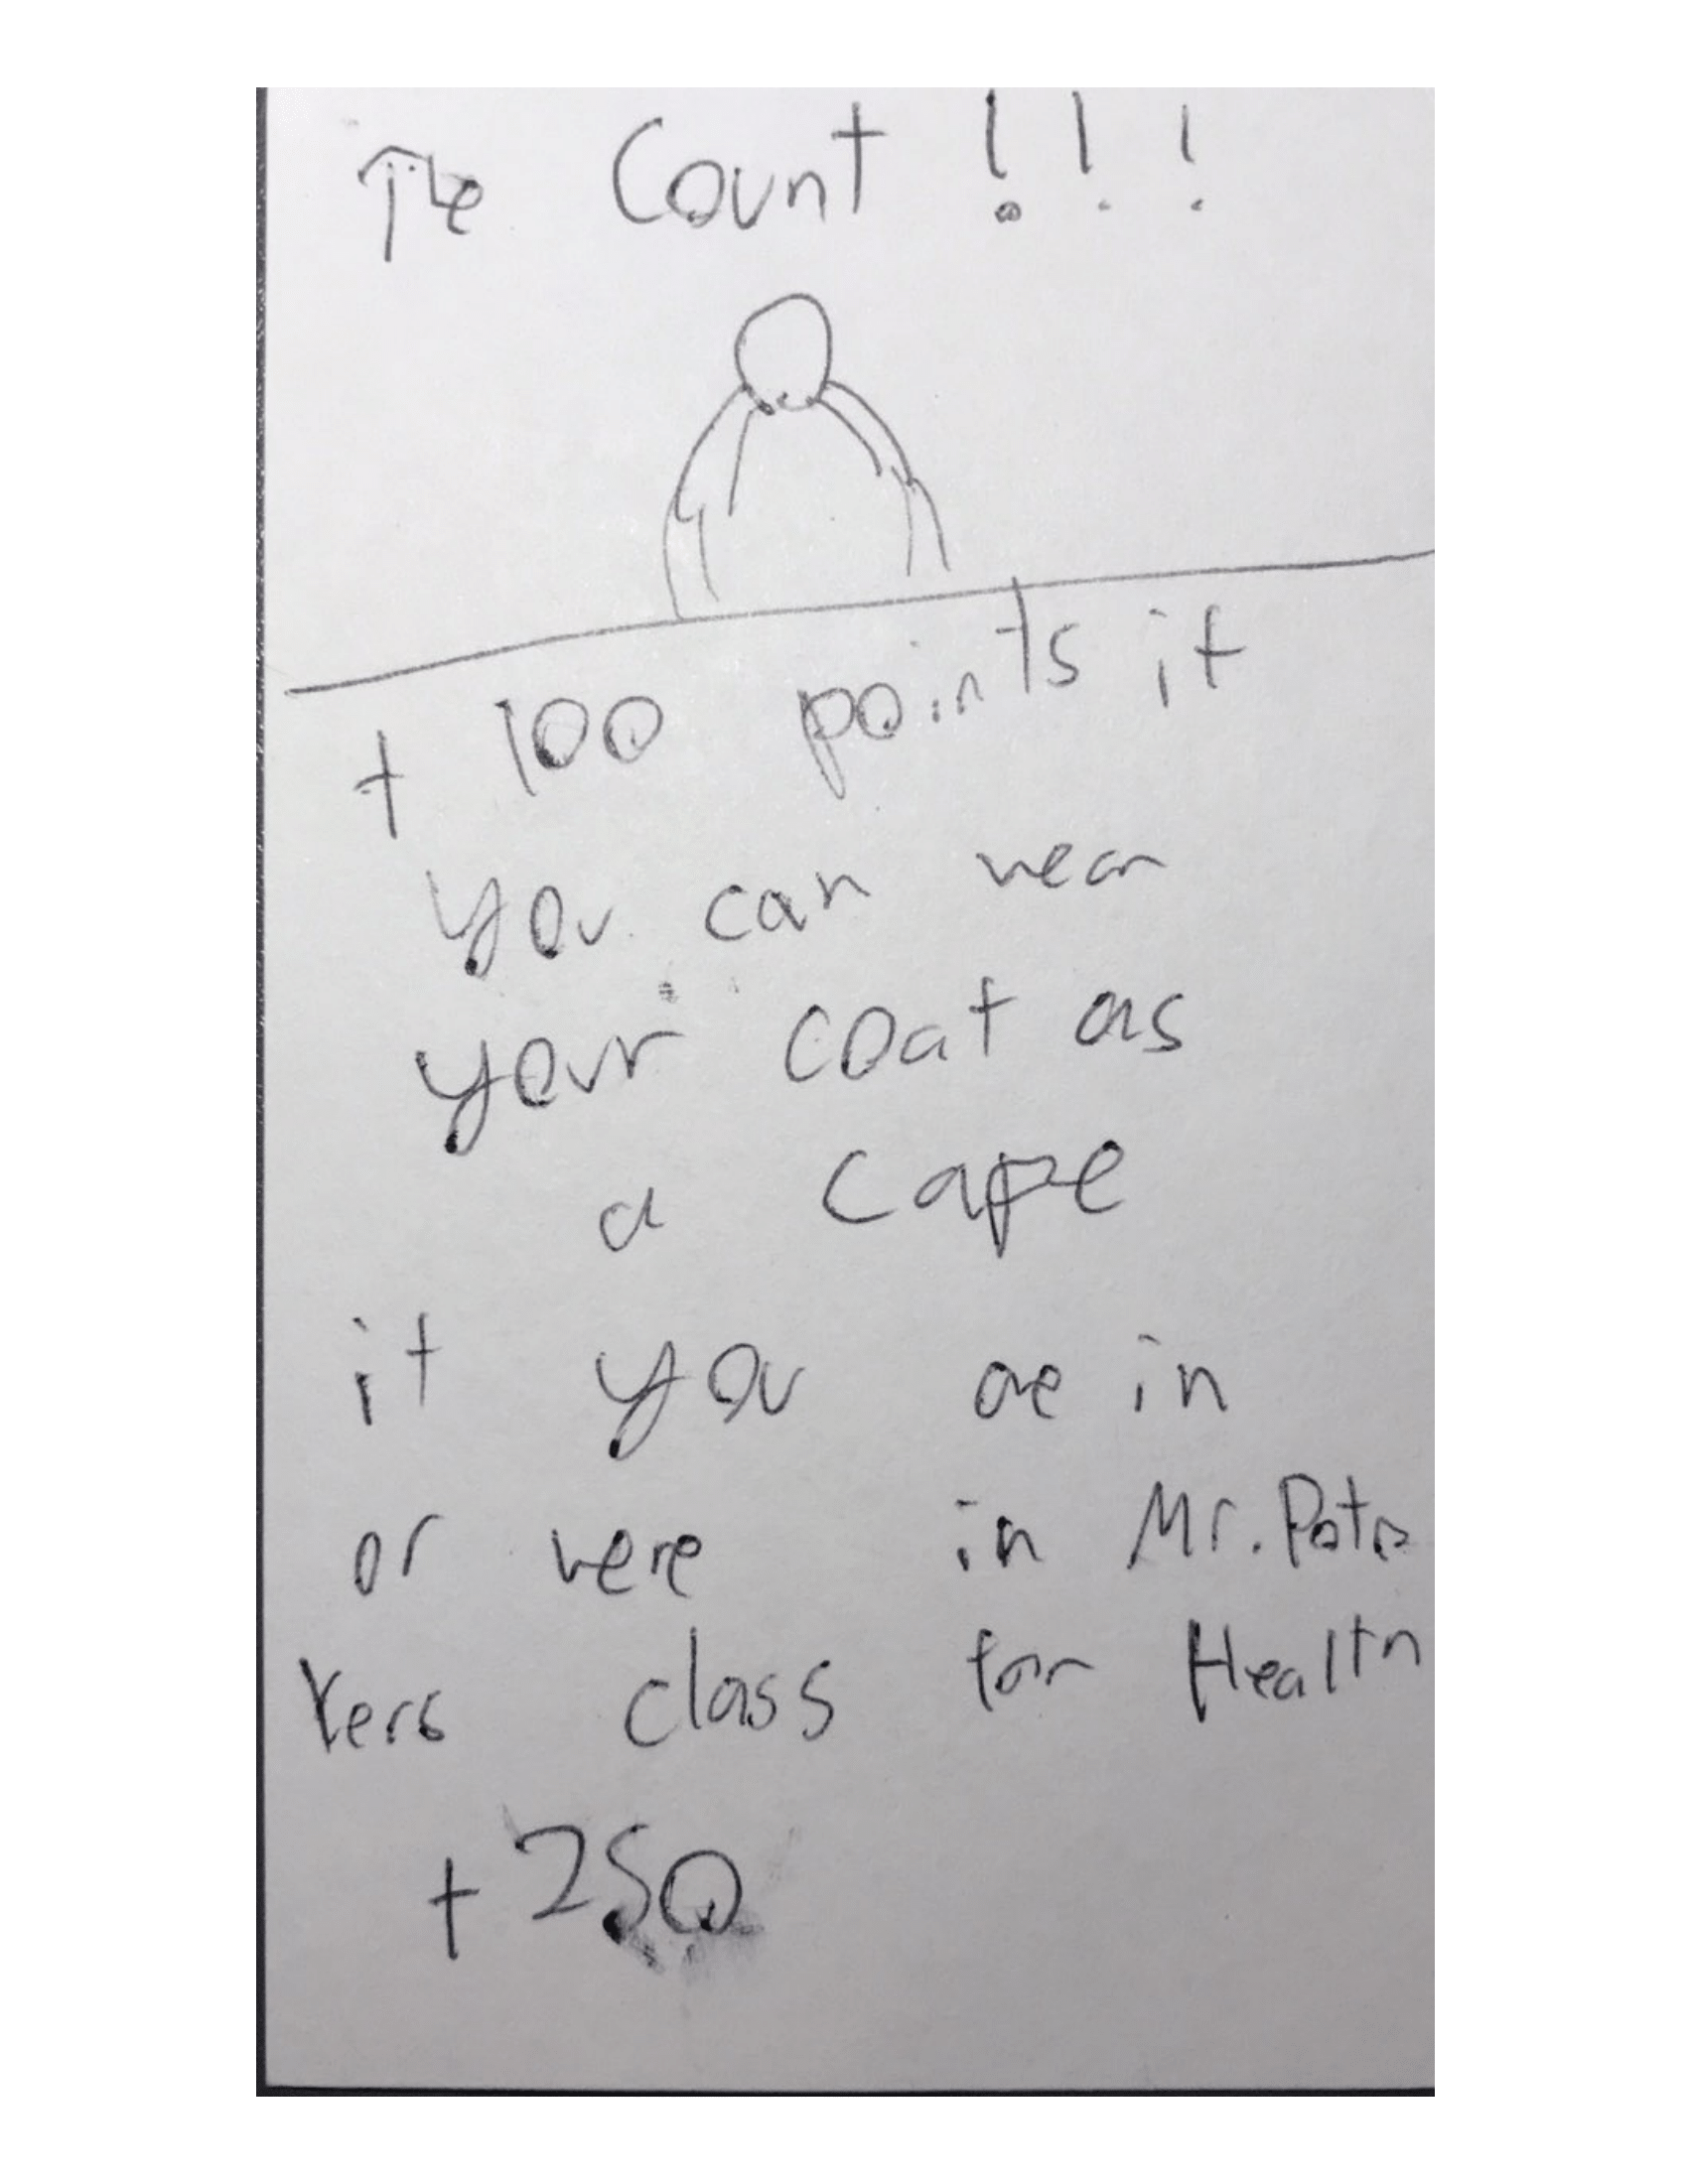 The Count !!!
+ 100 points if
you can wear
your coat as
a cape
if you are in
or were in Mr. Pata
kers class for Health
+250